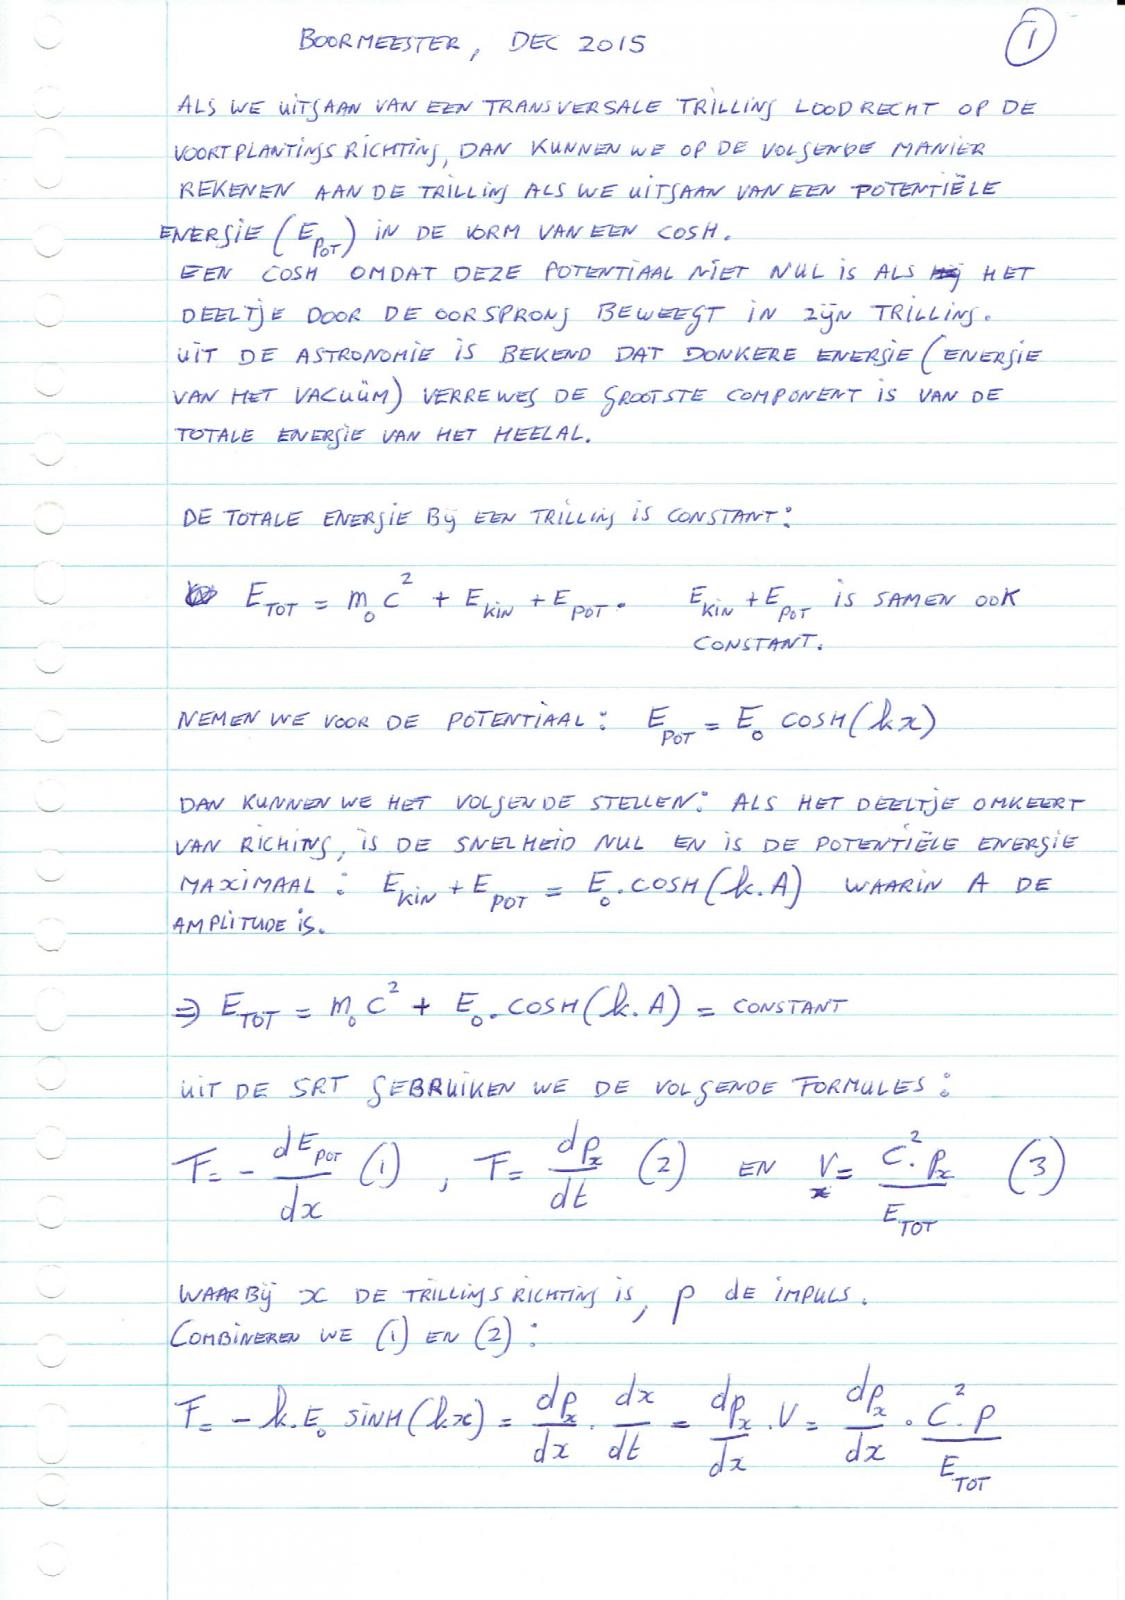 BOORMEESTER, DEC 2015
1
ALS WE UITGAAN VAN EEN TRANSVERSALE TRILLING LOODRECHT OP DE
VOORTPLANTINGSRICHTING, DAN KUNNEN WE OP DE VOLGENDE MANIER
REKENEN AAN DE TRILLING ALS WE UITGAAN VAN EEN POTENTIËLE
ENERGIE (E_POT) IN DE VORM VAN EEN COSH.
EEN COSH OMDAT DEZE POTENTIAAL NIET NUL IS ALS HET
DEELTJE DOOR DE OORSPRONG BEWEEGT IN ZIJN TRILLING.
UIT DE ASTRONOMIE IS BEKEND DAT DONKERE ENERGIE (ENERGIE
VAN HET VACUÜM) VERREWEG DE GROOTSTE COMPONENT IS VAN DE
TOTALE ENERGIE VAN HET HEELAL.
DE TOTALE ENERGIE BIJ EEN TRILLING IS CONSTANT:
E_TOT = m_0 c^2 + E_KIN + E_POT. E_KIN + E_POT IS SAMEN OOK
CONSTANT.
NEMEN WE VOOR DE POTENTIAAL: E_POT = E_0 COSH(kx)
DAN KUNNEN WE HET VOLGENDE STELLEN: ALS HET DEELTJE OMKEERT
VAN RICHING, IS DE SNELHEID NUL EN IS DE POTENTIËLE ENERGIE
MAXIMAAL: E_KIN + E_POT = E_0.COSH(k.A) WAARIN A DE
AMPLITUDE IS.
⇒ E_TOT = m_0 c^2 + E_0.COSH(k.A) = CONSTANT
UIT DE SRT GEBRUIKEN WE DE VOLGENDE FORMULES:
F = - dE_POT/dx (1), F = dp_x/dt (2) EN V_x = c^2.p_x/E_TOT (3)
WAARBIJ x DE TRILLINGSRICHTING IS, p DE IMPULS.
COMBINEREN WE (1) EN (2):
F = - k.E_0 SINH(kx) = dp_x/dx . dx/dt = dp_x/dx . V = dp_x/dx . c^2.p/E_TOT